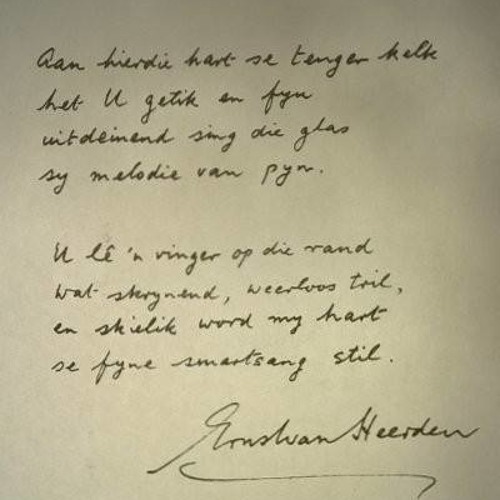 Aan hierdie hart se tenger kelk
het U getik en fyn
uitdeinend sing die glas
sy melodie van pyn.
U lê 'n vinger op die rand
wat skrynend, weerloos tril,
en skielik word my hart
se fyne smartsang stil.
Ernst van Heerden